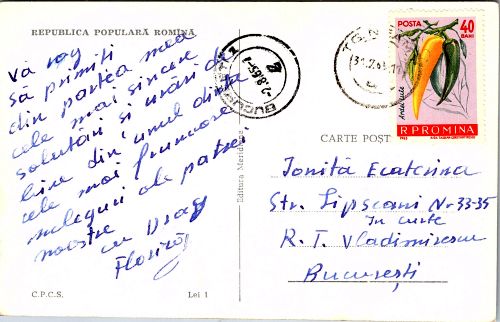 REPUBLICA POPULARĂ ROMÎNĂ
Vă rog
să primiți
din partea mea
cele mai sincere
salutări și urări de
bine din unul dintre
cele mai frumoase
meleguri ale patriei
noastre
cu Drag
Florizog
C.P.C.S.
Lei 1
Editura Meridiane
BUCUREȘTI
-2.8.65-
CARTE POȘT
POSTA
40
BANI
Ardei iute
R.P.ROMINA
1963
Ioniță Ecaterina
Str. Lipscani Nr 33-35
In curte
R. T. Vladimirescu
București